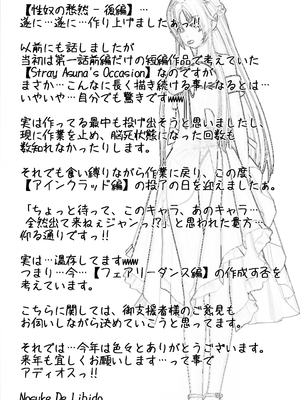 【性奴の愁然 - 後編】…
遂に…遂に…作り上げましたぁっ!!
以前にも話しましたが
当初は第一話前編だけの短編作品で考えていた
【Stray Asuna's Occasion】なのですが
まさか…こんなに長く描き続ける事になるとは…
いやいや…自分でも驚きですwww
実は作ってる最中も投げ出そうと思いましたし、
現に作業を止め、脳死状態になった回数も
数知れなかったりします。
それでも食い縛りながら作業に戻り、この度、
【アインクラッド編】の投了の日を迎えましたぁ。
「ちょっと待って、このキャラ、あのキャラ…
全然出て来ねぇジャンっ!?」と思われた貴方…
仰る通りですっ!!
実は…温存してますwww
つまり…今…【フェアリーダンス編】の作成す否を
考えています。
こちらに関しては、御支援者様のご意見も
お伺いしながら決めていこうと思ってます。
それでは…今年は色々とありがとうございます。
来年も宜しくお願いします…って事で
アディオスっ!!
Nosuke De Libido